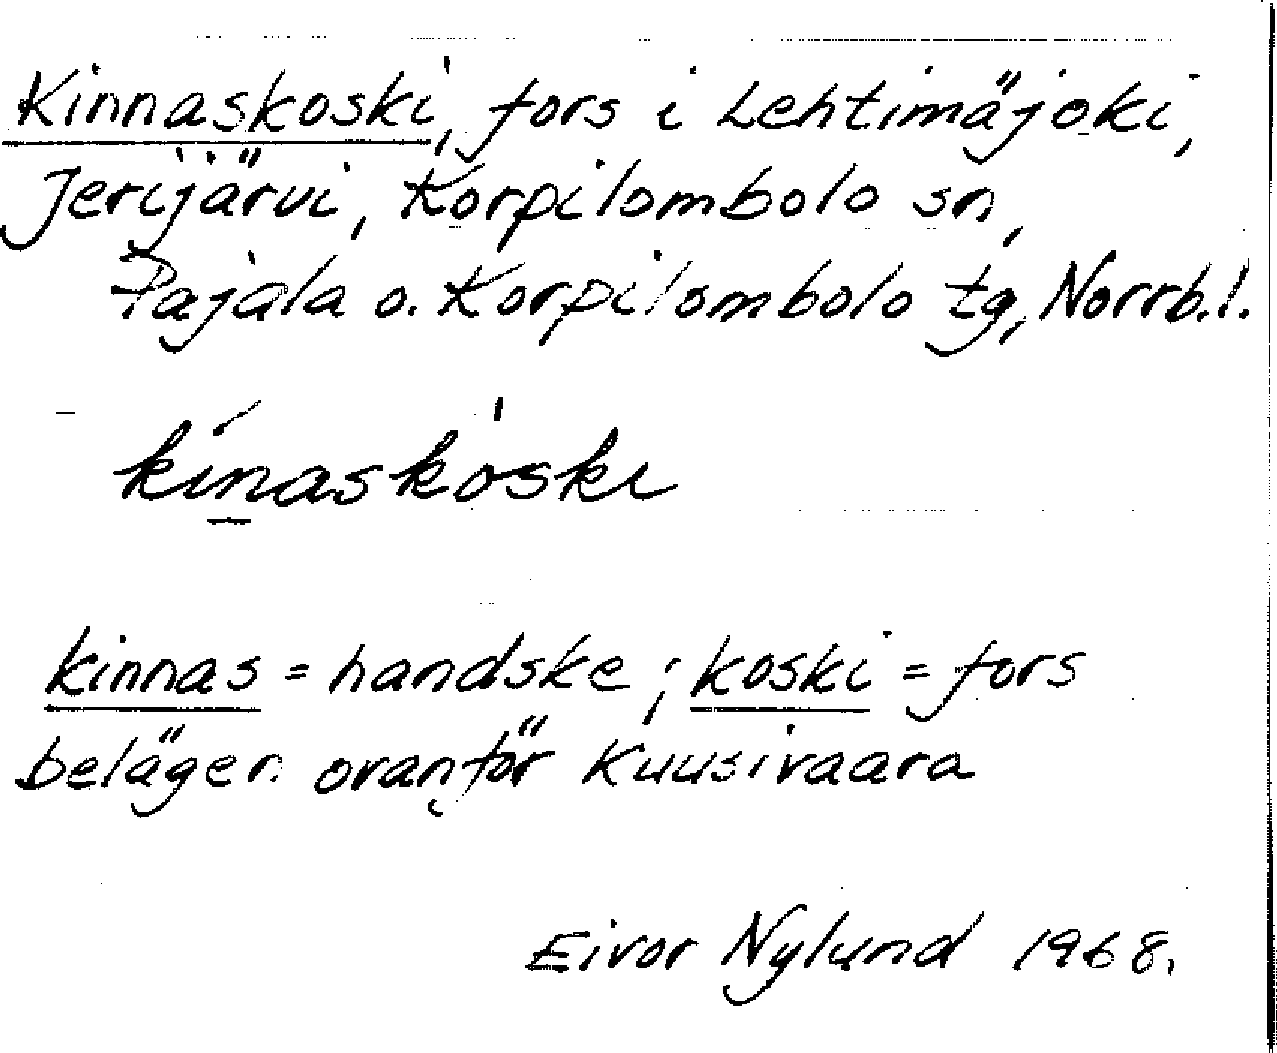 Kinnaskoski, fors i Lehtimäjoki,
Jerijärvi, Korpilombolo sn,
Pajala o. Korpilombolo tg, Norrb.l.
kínaskòski
kinnas = handske; koski = fors
belägen ovanför Kuusivaara
Eivor Nylund 1968.